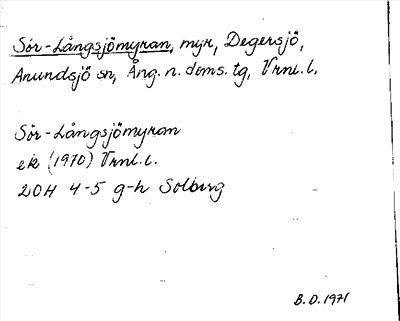 Sör-Långsjömyran, myr, Degersjö,
Anundsjö sn, Ång. n. doms. tg, Vrnl. l.
Sör-Långsjömyran
ek (1970) Vrnl. l.
20H 4-5 g-h Solberg
B.D. 1971